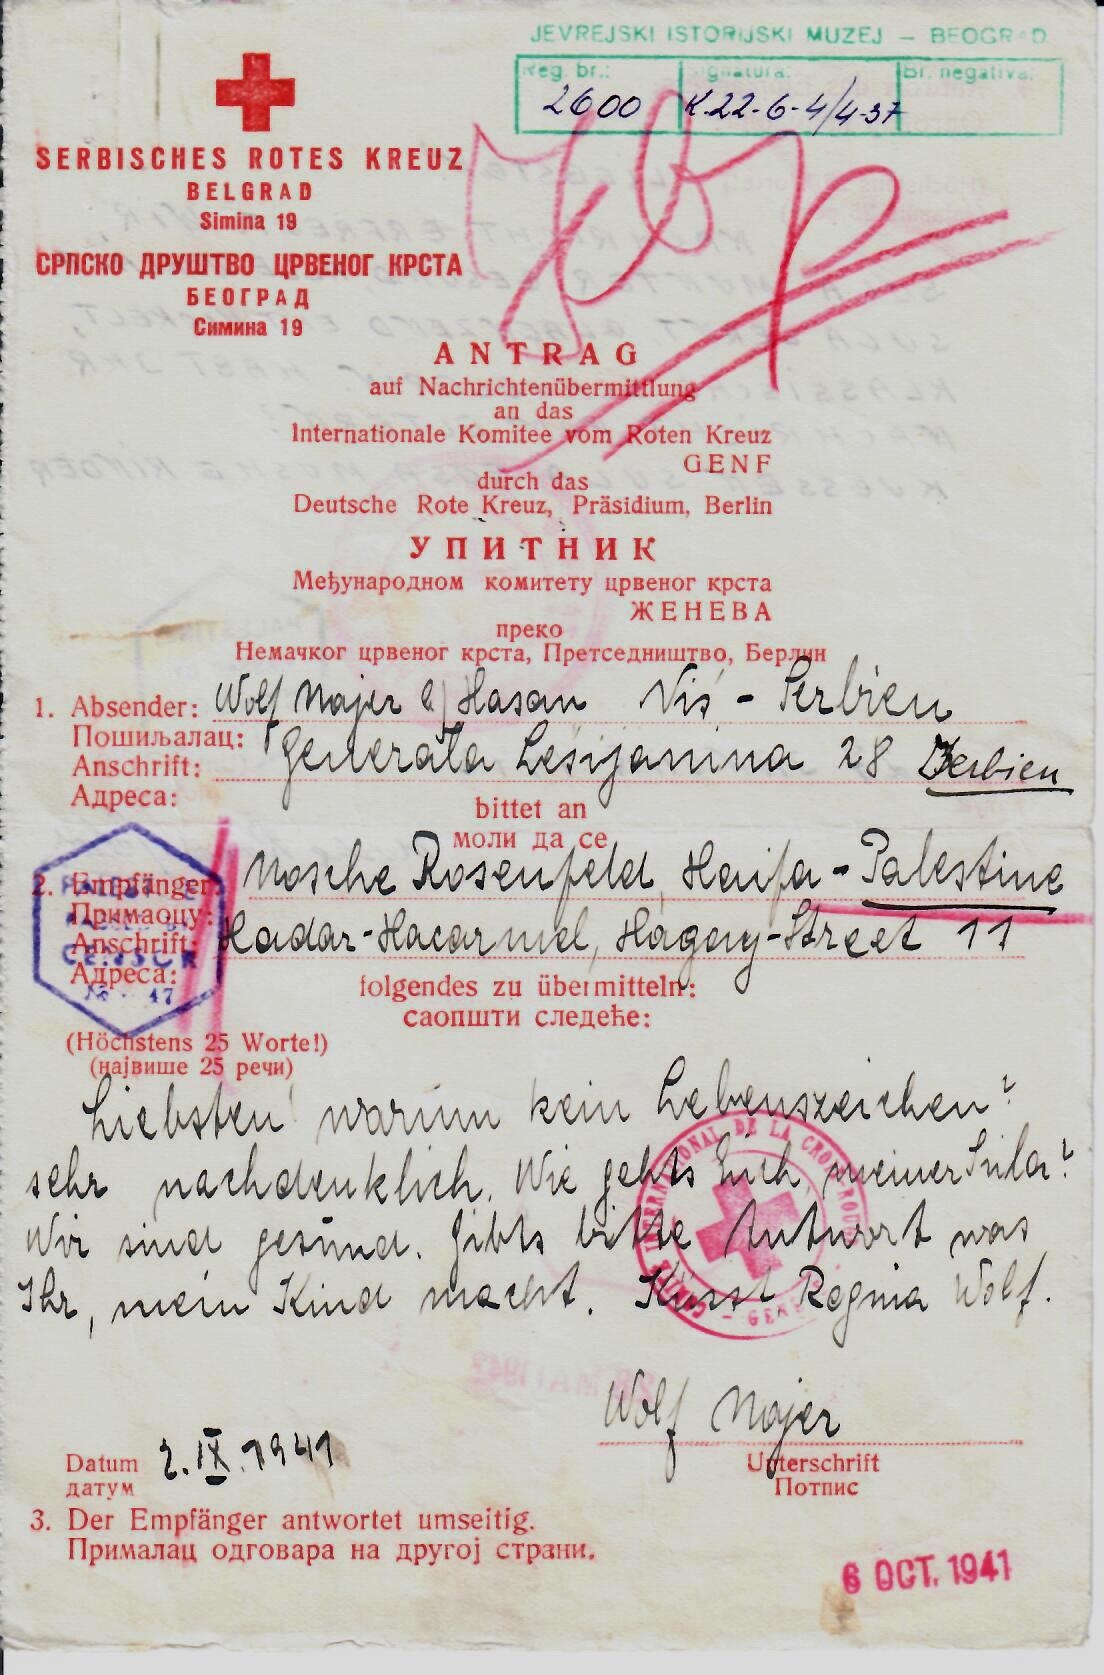 JEVREJSKI ISTORIJSKI MUZEJ — BEOGRAD
Reg. br.: Signatura: Br. negativa:
2600 K.22-6-4/4-37
SERBISCHES ROTES KREUZ
BELGRAD
Simina 19
СРПСКО ДРУШТВО ЦРВЕНОГ КРСТА
БЕОГРАД
Симина 19
ANTRAG
auf Nachrichtenübermittlung
an das
Internationale Komitee vom Roten Kreuz
GENF
durch das
Deutsche Rote Kreuz, Präsidium, Berlin
УПИТНИК
Међународном комитету црвеног крста
ЖЕНЕВА
преко
Немачког црвеног крста, Претседништво, Берлин
1. Absender: Wolf Majer Hasan Niš - Serbien
Пошиљалац:
Anschrift: Generala Lešijanina 28 Serbien
Адреса:
bittet an
моли да се
2. Empfänger: Mosche Rosenfeld, Haifa - Palestine
Примаоцу:
Anschrift: Hadar-Hacarmel, Street 11
Адреса:
CENSOR
47
folgendes zu übermitteln:
саопшти следеће:
(Höchstens 25 Worte!)
(највише 25 речи)
Liebsten! warum kein Lebenszeichen?
sehr nachdenklich. Wie gehts Euch, meiner Sula?
Wir sind gesund. Gibts bitte Antwort was
Ihr, mein Kind macht. Küsst Regina Wolf.
COMITÉ INTERNATIONAL DE LA CROIX-ROUGE - GENÈVE -
Wolf Majer
Datum 2.IX.1941
датум
Unterschrift
Потпис
3. Der Empfänger antwortet umseitig.
Прималац одговара на другој страни.
6 OCT. 1941